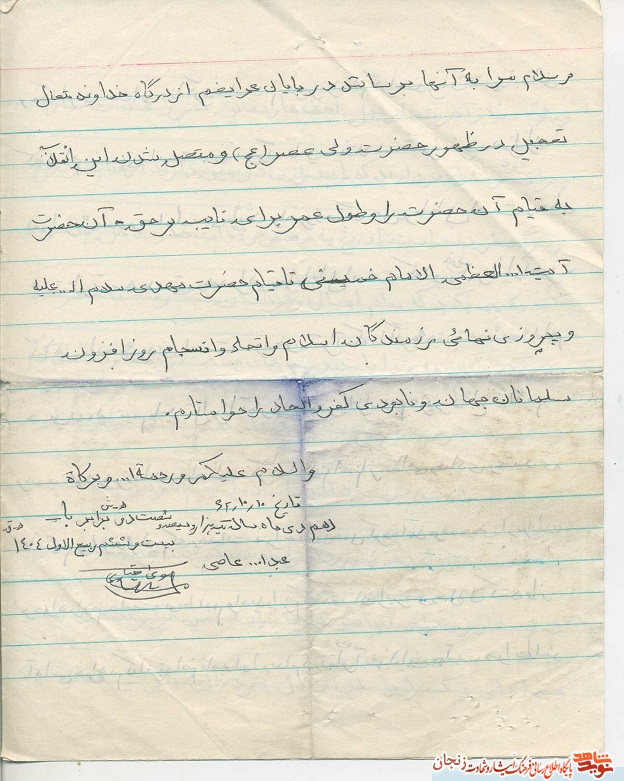 و سلام مرا به آنها برسانند در پایان عرایضم از درگاه خداوند متعال
تعجیل در ظهور حضرت ولی عصر (عج) و متصل شدن این انقلاب
به قیام آن حضرت را و طول عمر برای نایب بر حق آن حضرت
آیت ا... العظمی الامام خمینی تا قیام حضرت مهدی سلام ا... علیه
و پیروزی نهائی رزمندگان اسلام و اتحاد و انسجام روز افزون
مسلمانان جهان و نابودی کفر و الحاد را خواستارم.
والسلام علیکم و رحمة ا... و برکاة
تاریخ ۶۲/۱۰/۱۰
دهم دی ماه سال یکهزار و سیصد و شصت دو برابر با
بیست و ششم ربیع الاول ۱۴۰۴ ه.ق
عبدا... عاصی
نوید شاهد
پایگاه اطلاع رسانی فرهنگ ایثار و شهادت زنجان